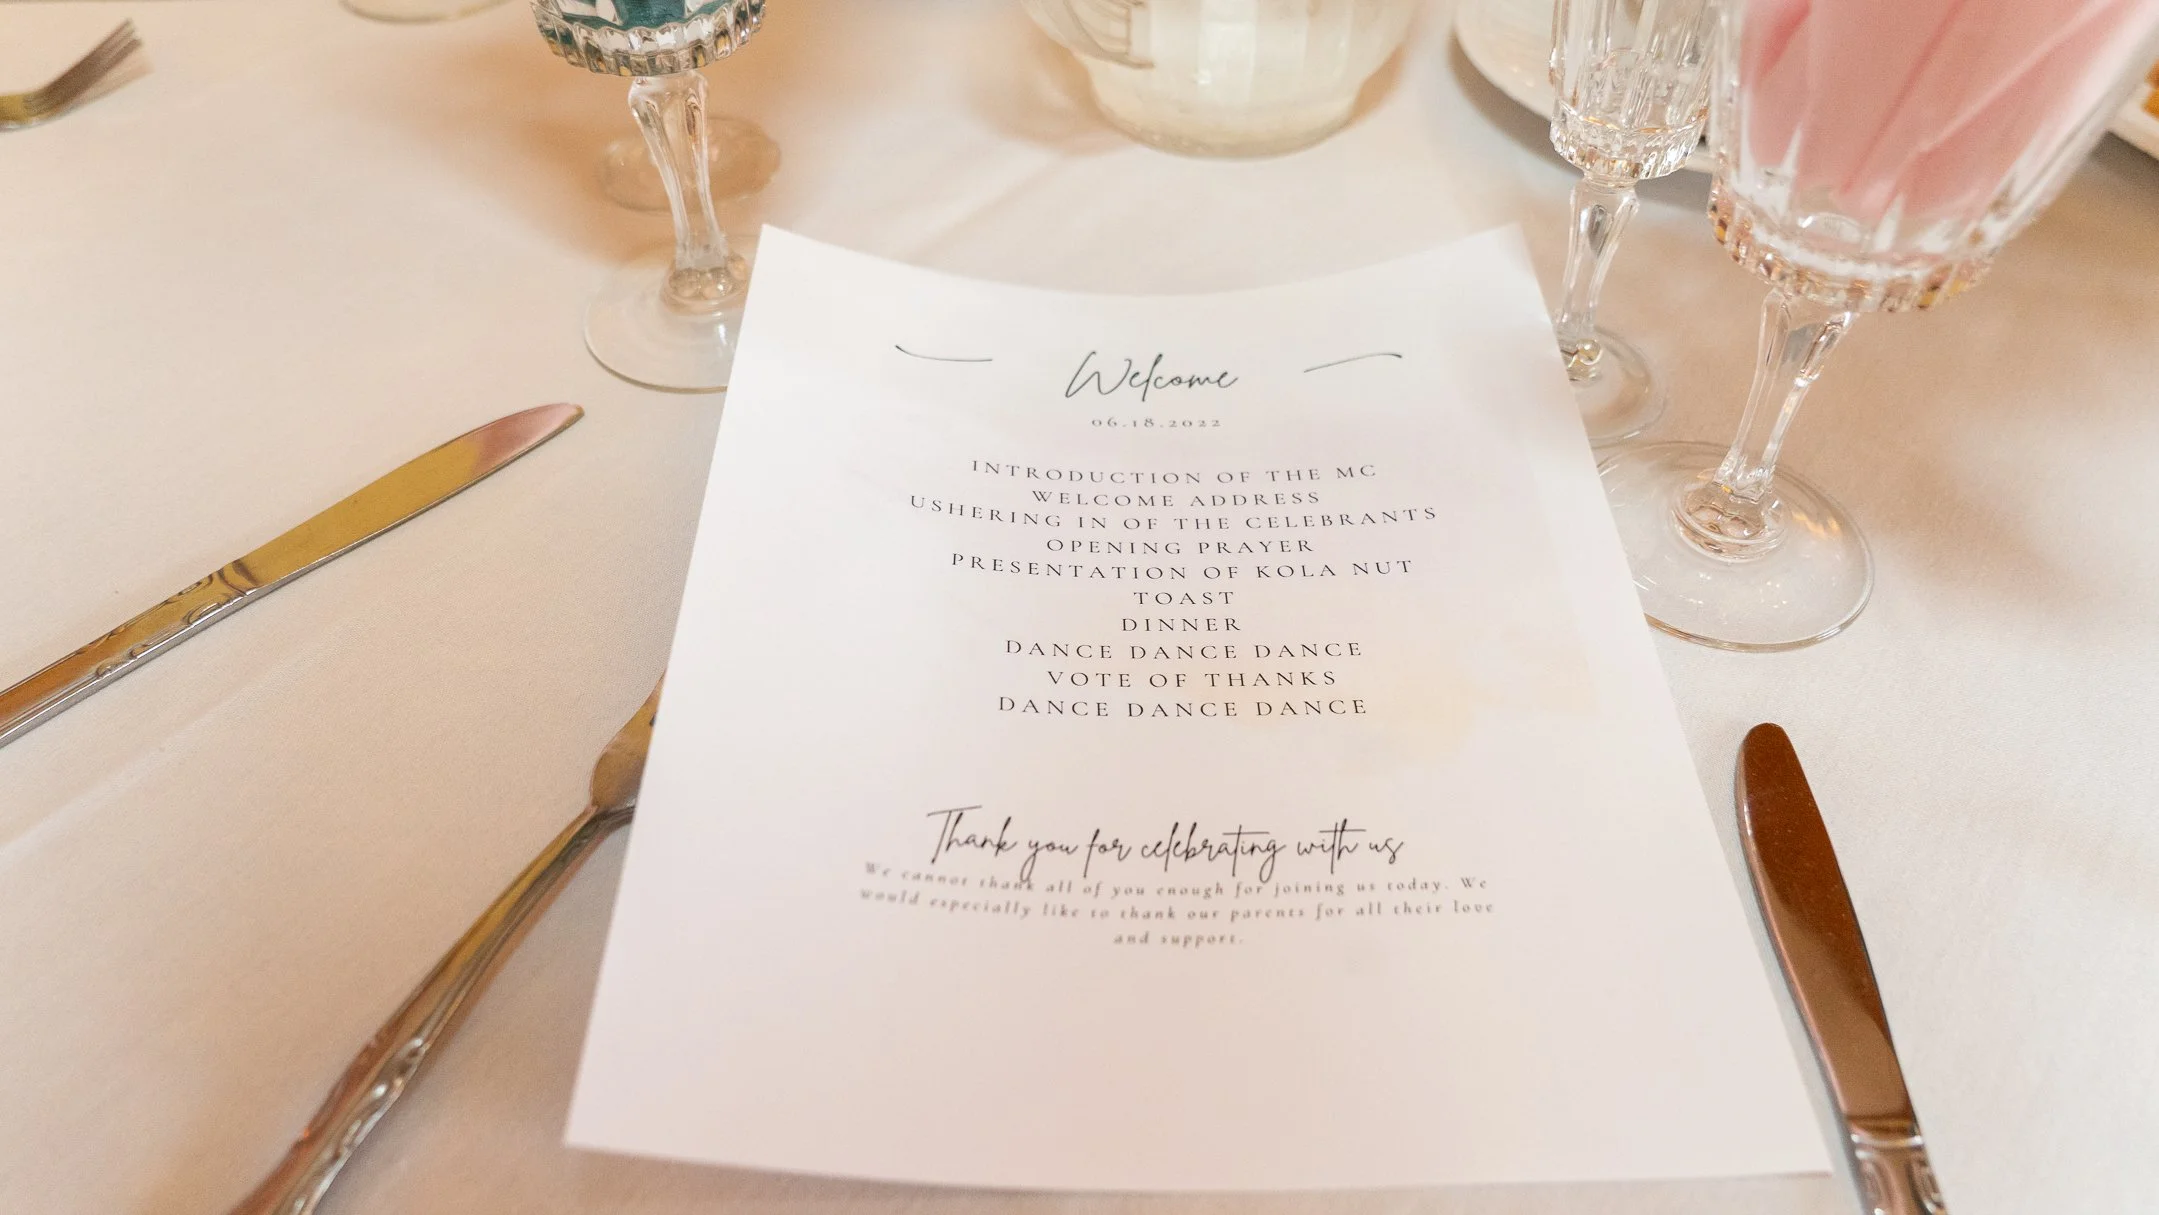 Welcome
06.18.2022
INTRODUCTION OF THE MC
WELCOME ADDRESS
USHERING IN OF THE CELEBRANTS
OPENING PRAYER
PRESENTATION OF KOLA NUT
TOAST
DINNER
DANCE DANCE DANCE
VOTE OF THANKS
DANCE DANCE DANCE
Thank you for celebrating with us
We cannot thank all of you enough for joining us today. We
would especially like to thank our parents for all their love
and support.